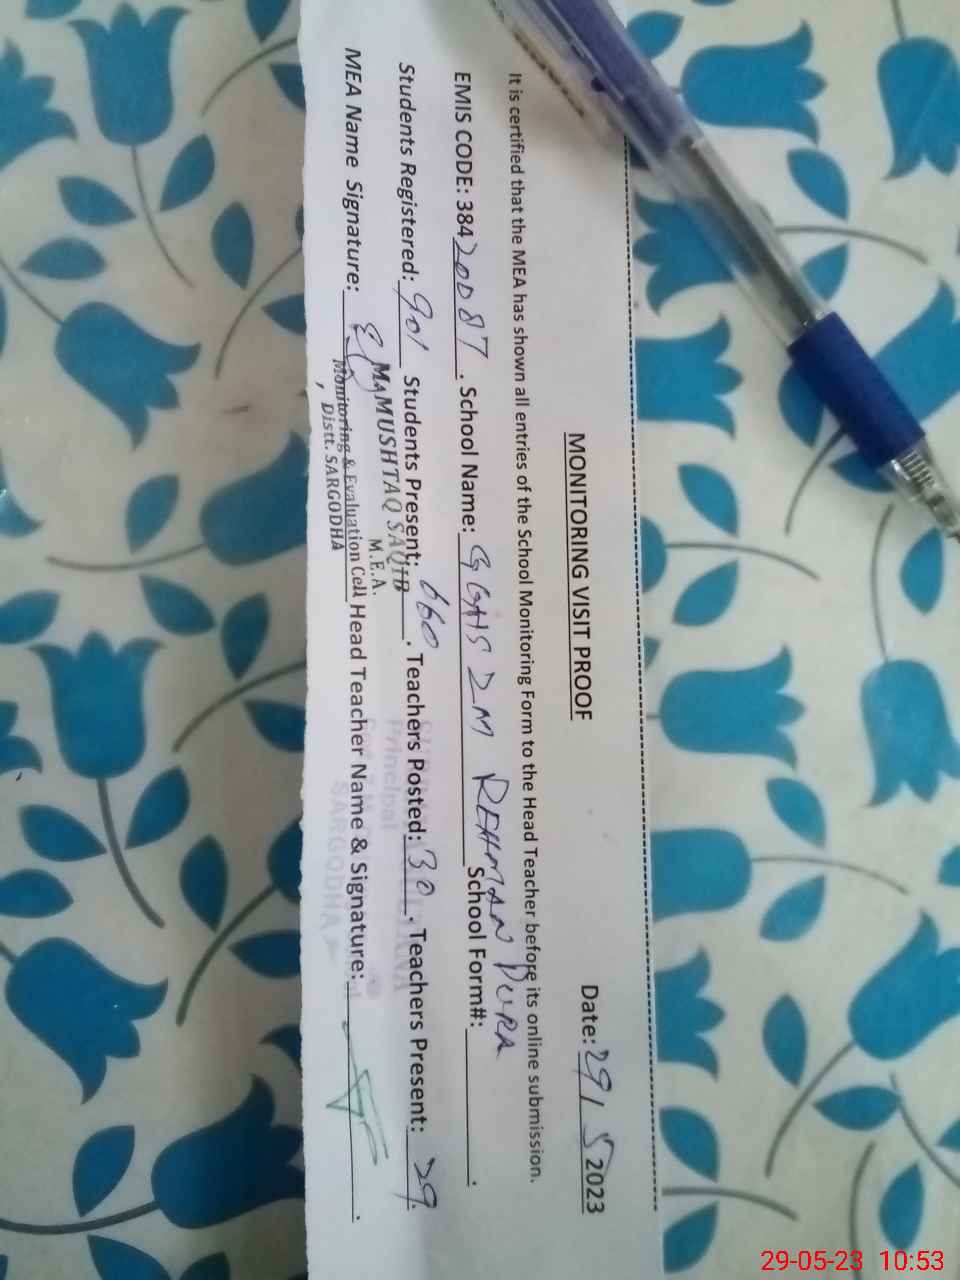 MONITORING VISIT PROOF
Date: 29/5 2023
It is certified that the MEA has shown all entries of the School Monitoring Form to the Head Teacher before its online submission.
EMIS CODE: 38420087. School Name: GGHS 2M REHMAN PURA School Form#:
Students Registered: 901 Students Present: 660. Teachers Posted: 30. Teachers Present: 29.
MUSHTAQ SAQIB
M.E.A.
MEA Name Signature: Head Teacher Name & Signature:
Monitoring & Evaluation Cell
Distt. SARGODHA
Principal
SARGODHA
29-05-23 10:53